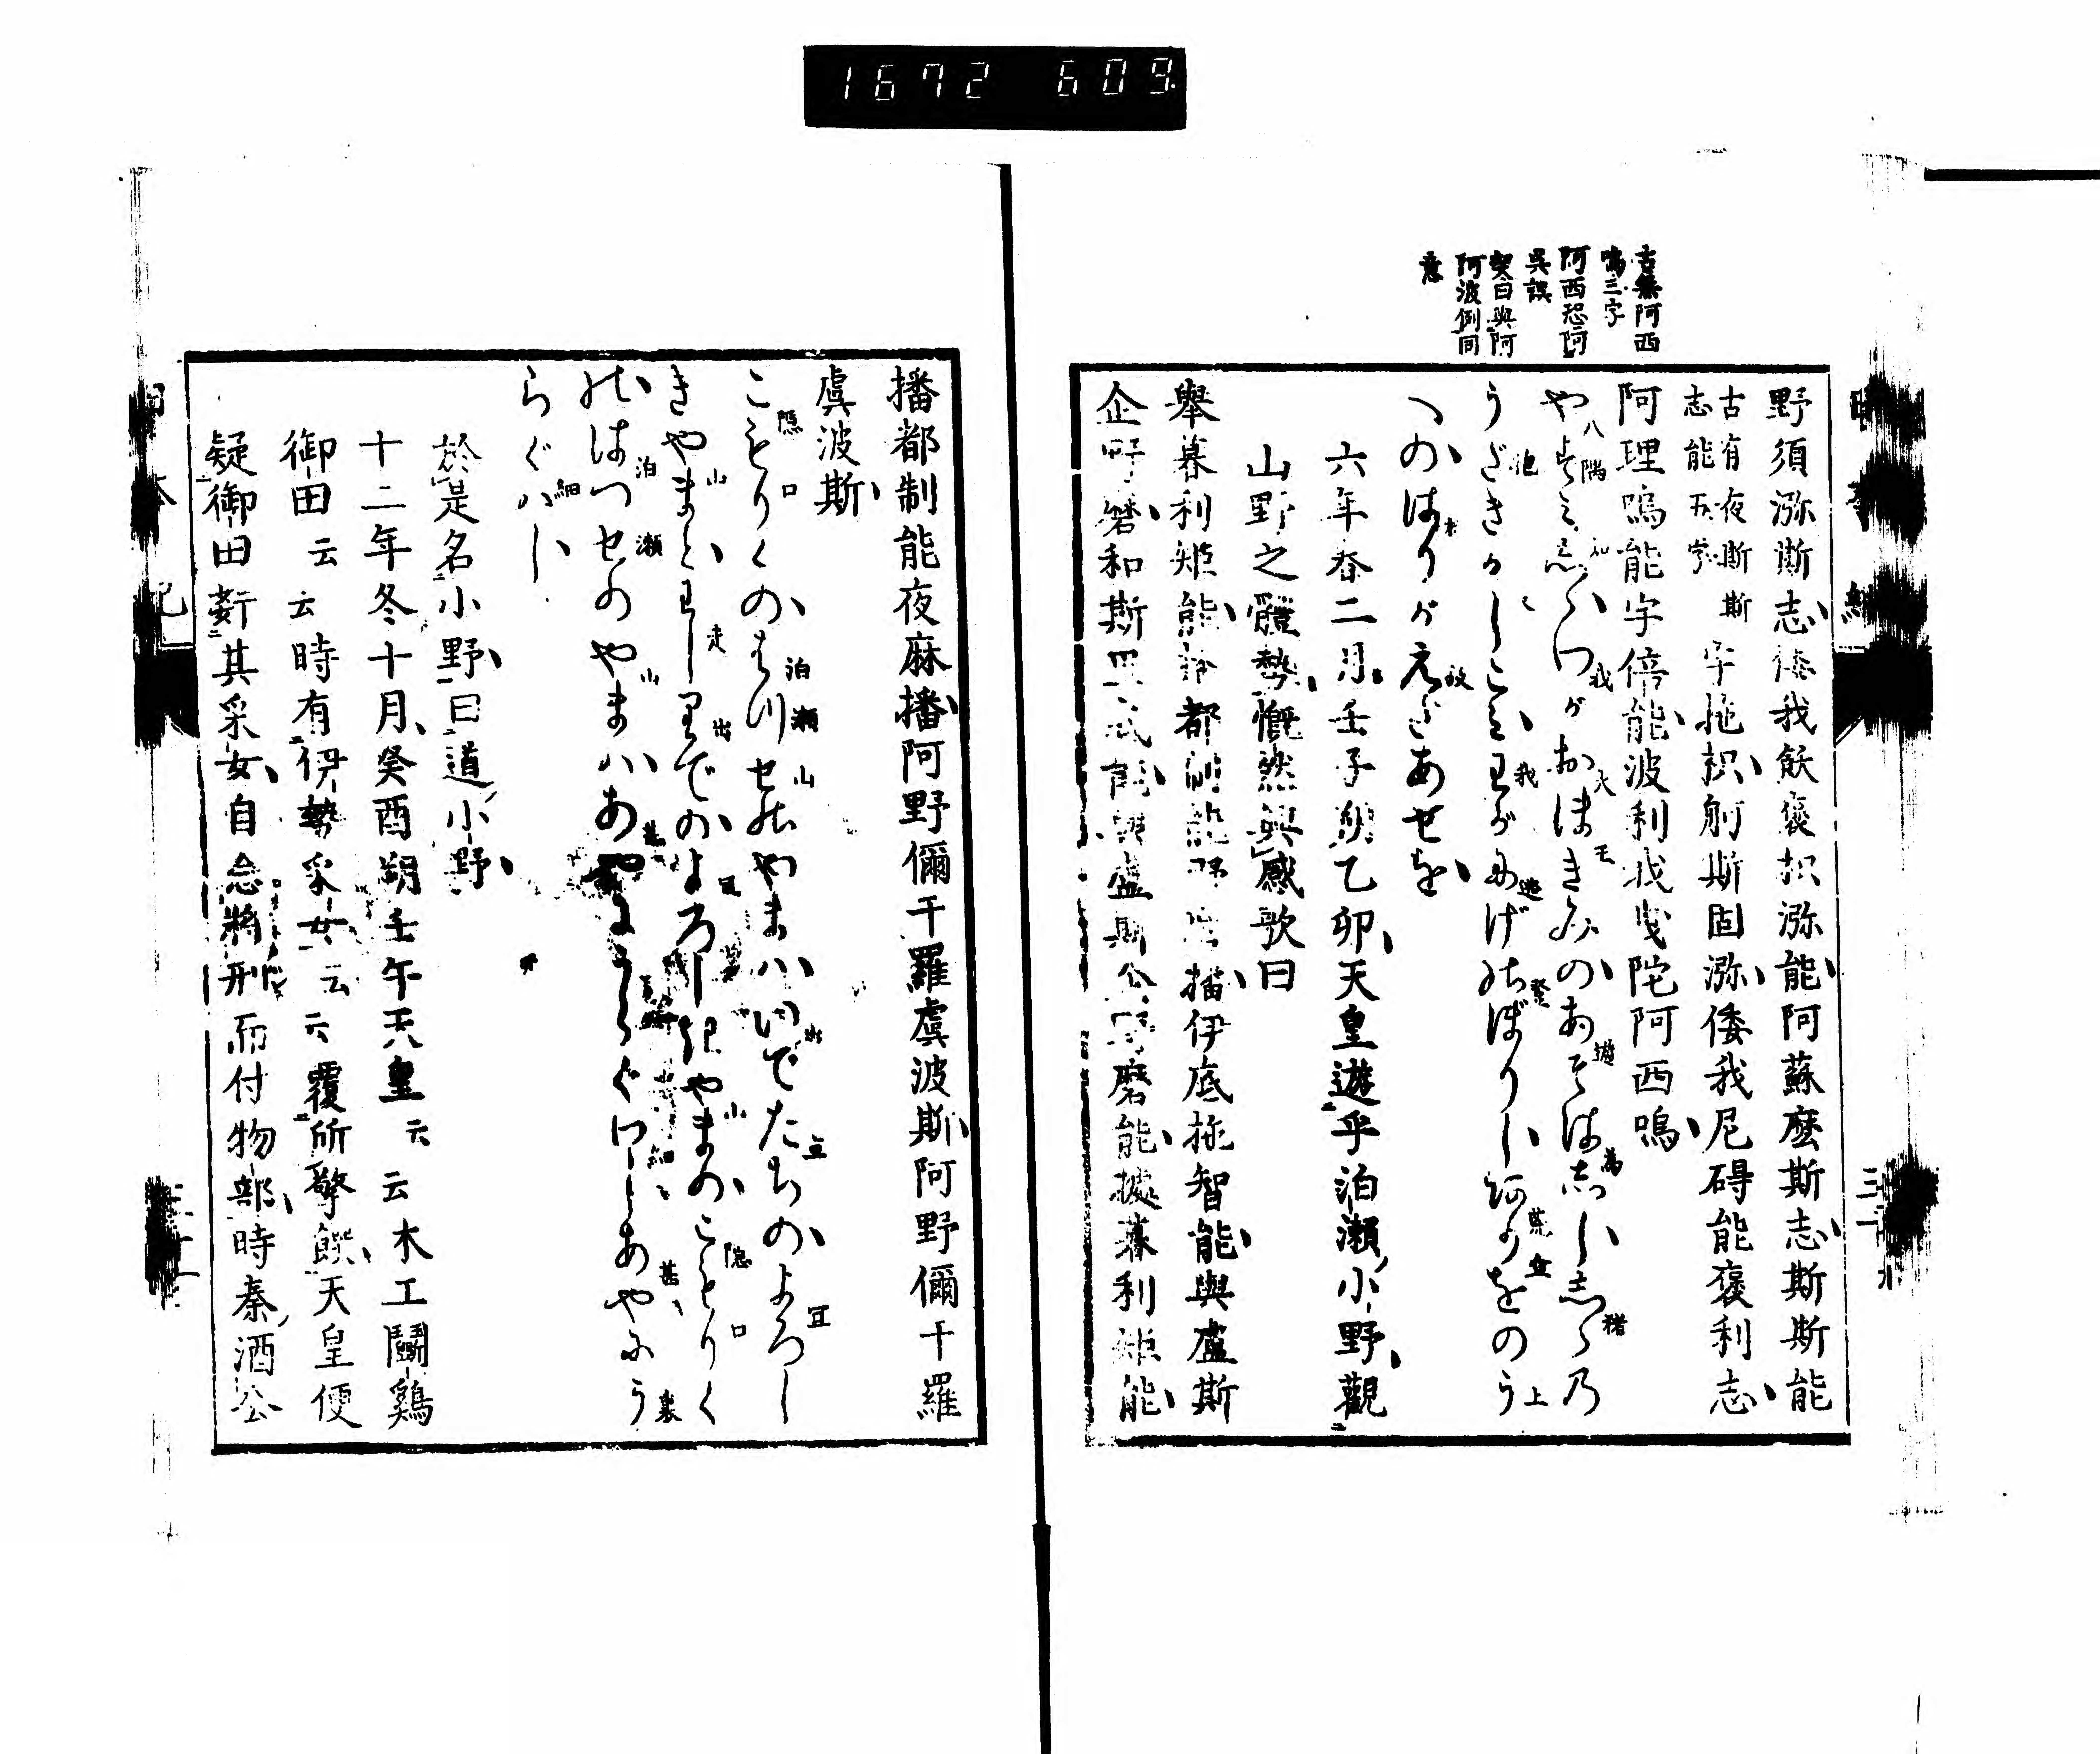 1672 609
古無阿西
嗚三字
阿西恐阿
呉誤
契曰與阿
阿波例同
意
野須瀰斯志倭我飫裒枳瀰能阿蘇麼斯志斯斯能
古有夜斯斯
志能五字
宇拖枳舸斯固瀰倭我尼碍能裒利志
阿理嗚能宇倍能波利我曵陀阿西嗚
やすみしゝわがおほきみのあそばしゝしゝの
八隅 知 我 大 王 遊 為 猪
うだきかしこみわがにげのぼりしありをのう
我 迯 登 荒 上
への はりがえだあせを
六年春二月壬子朔乙卯天皇遊乎泊瀬小野觀
山野之體勢慨然興感歌曰
擧暮利矩能 都制能野 播伊底拖智能與盧斯
企野磨和斯 底能與盧斯企野磨能據暮利矩能
播都制能夜麻播阿野儞于羅虞波斯阿野儞于羅
虞波斯
こもりくのはつせのやまはいでたちのよろし
隠 口 泊瀬 山 出 立 宜
きやまわしりでのよろしきやまのこもりく
山 走 出 山 隠 口
のはつせのやまはあやにうらぐはしあやにう
泊 瀬 山 細 甚 裏
らぐはし
細
於是名小野曰道小野
十二年冬十月癸酉朔壬午天皇云云木工鬪鷄
御田云云時有伊勢采女云云覆所擎饌天皇便
疑御田姧其采女自念將刑而付物部時秦酒公